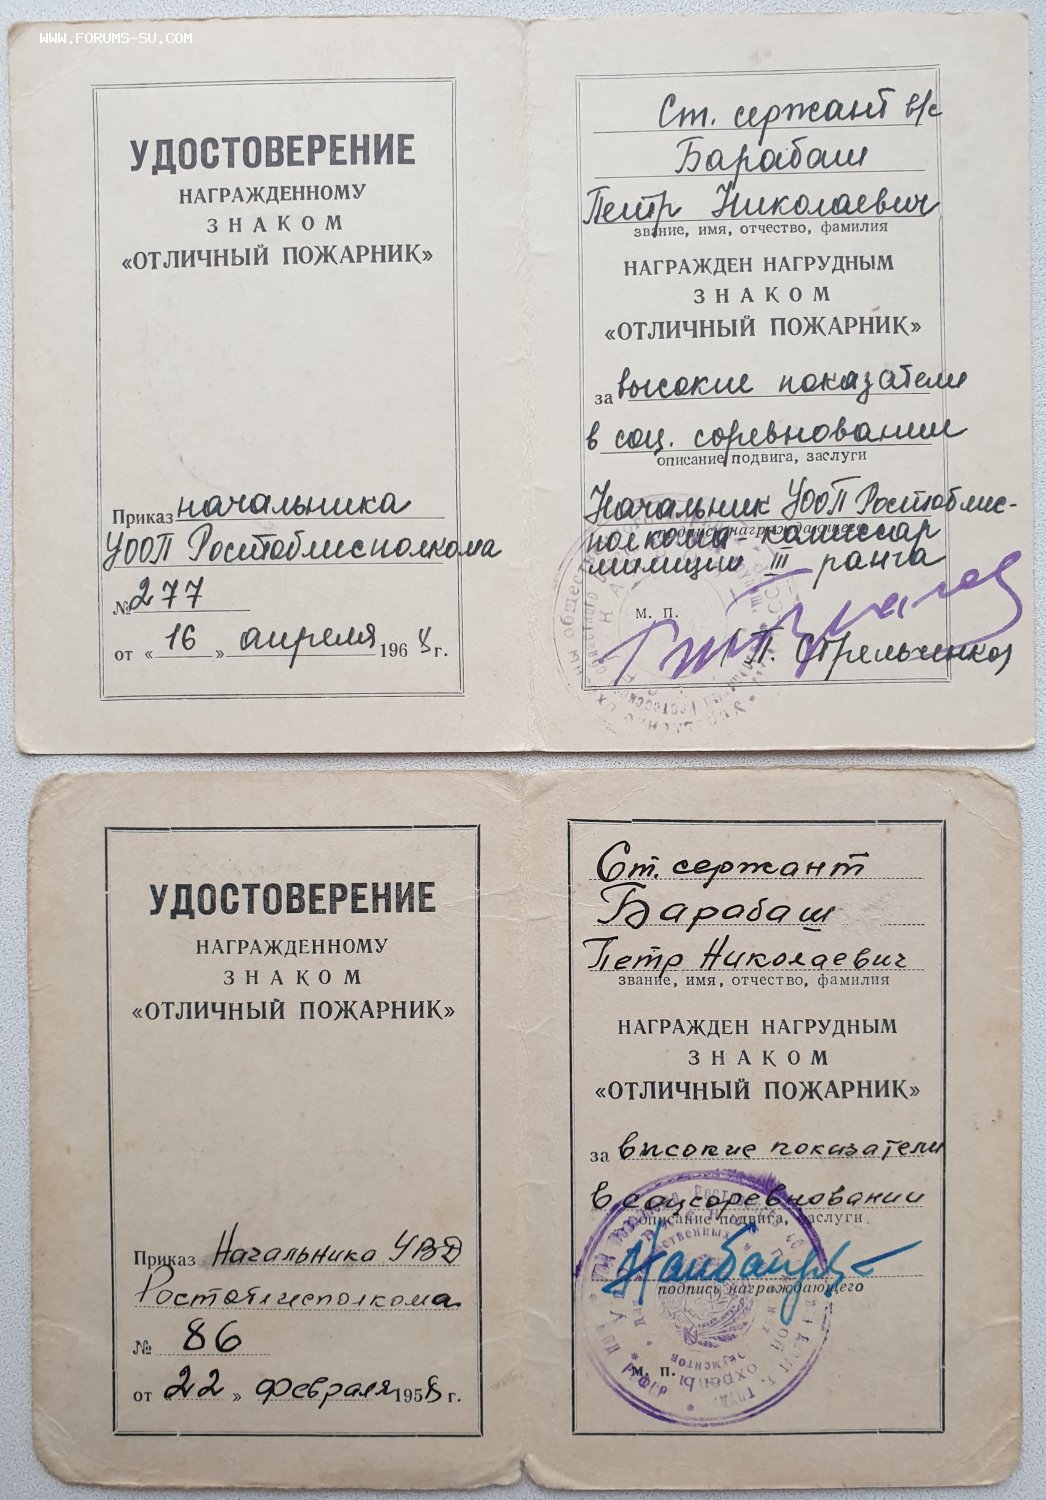 WWW.FORUMS-SU.COM
УДОСТОВЕРЕНИЕ
НАГРАЖДЕННОМУ
ЗНАКОМ
«ОТЛИЧНЫЙ ПОЖАРНИК»
Приказ начальника
УООП Ростоблисполкома
№ 277
от « 16 » апреля 1968 г.
Ст. сержант в/с
Барабаш
Петр Николаевич
звание, имя, отчество, фамилия
НАГРАЖДЕН НАГРУДНЫМ
ЗНАКОМ
«ОТЛИЧНЫЙ ПОЖАРНИК»
за высокие показатели
в соц. соревновании
описание подвига, заслуги
Начальник УООП Ростоблис-
подпись награждающего
полкома - комиссар
милиции III ранга
М. П.
П. Стрельченко
УДОСТОВЕРЕНИЕ
НАГРАЖДЕННОМУ
ЗНАКОМ
«ОТЛИЧНЫЙ ПОЖАРНИК»
Приказ Начальника УВД
Ростоблисполкома
№ 86
от 22 » февраля 1958 г.
Ст. сержант
Барабаш
Петр Николаевич
звание, имя, отчество, фамилия
НАГРАЖДЕН НАГРУДНЫМ
ЗНАКОМ
«ОТЛИЧНЫЙ ПОЖАРНИК»
за высокие показатели
в соцсоревновании
описание подвига, заслуги
подпись награждающего
М. П.